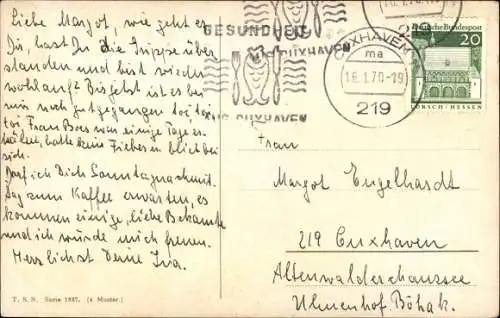 Liebe Margot, wie geht es
Du, hast Du die Grippe über
standen und bist wieder
wohlauf? Bis jetzt ist es bei
mir noch gutgegangen toi toi
toi Frau Boes war einige Tage er-
kältet, hatte kein Fieber blieb bei
sich.
Darf ich Dich Sonntagnachmit-
tag zum Kaffee erwarten, es
kommen einige liebe Bekannte
und ich würde mich freuen.
Herzlichst Deine Ina.
T. S. N. Serie 1887. (4 Muster.)
GESUNDHEIT
CUXHAVEN
AUS CUXHAVEN
CUXHAVEN
ma
16.1.70-19
219
Deutsche Bundespost
20
LORSCH/HESSEN
Frau
Margot Engelhardt
219 Cuxhaven
Altenwalderchaussee
Ulmenhof Böhak.